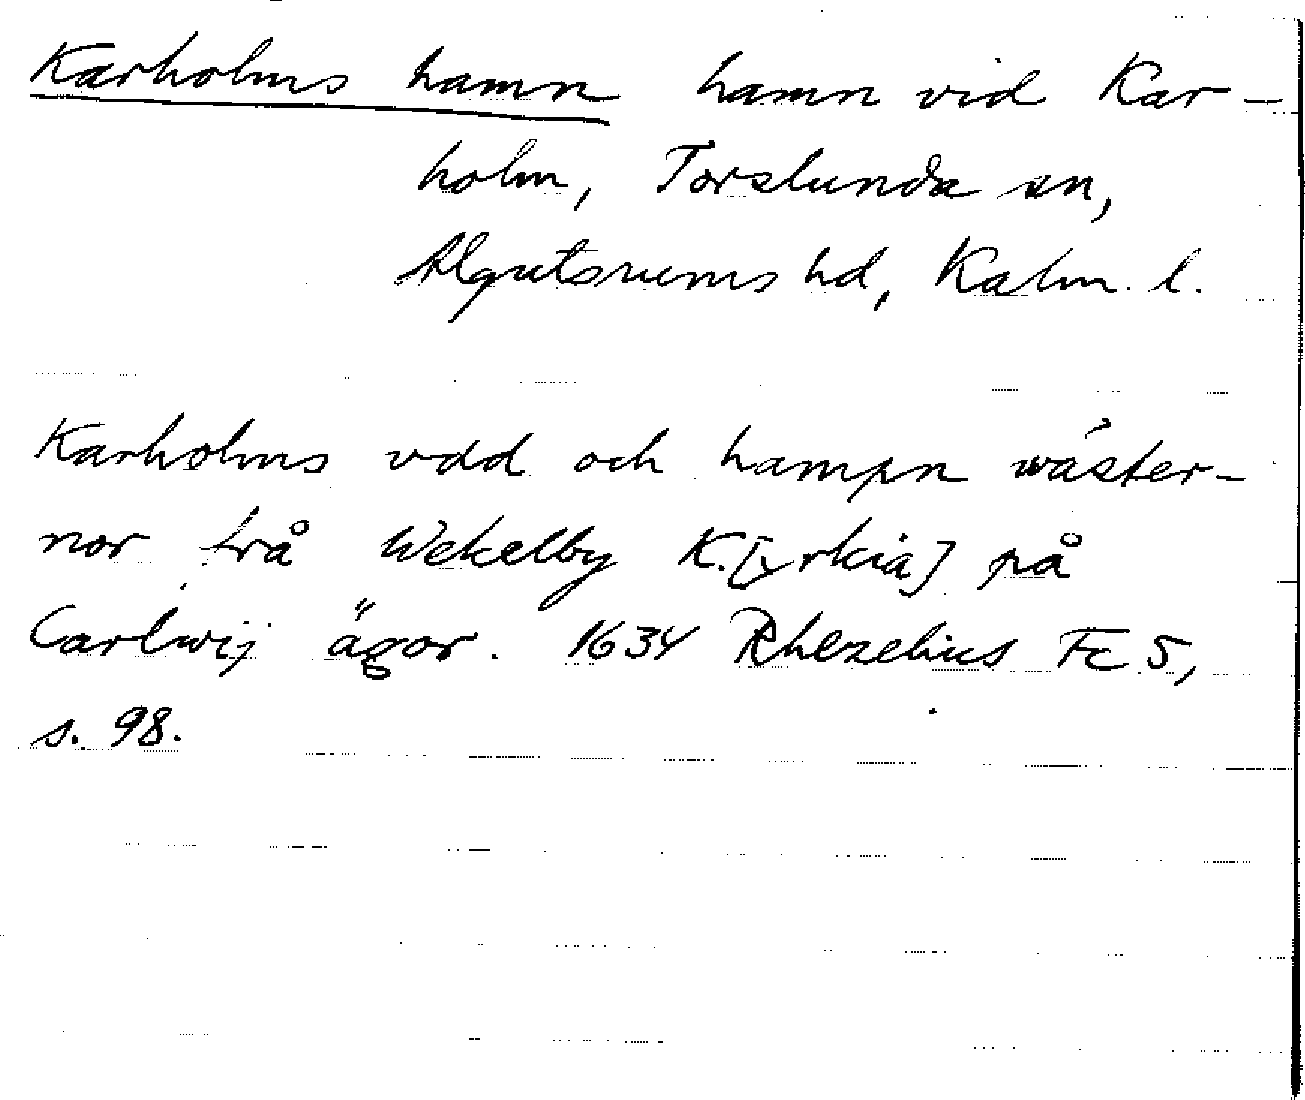 Karholms hamn hamn vid Kar-
holm, Torslunda sn,
Algutsrums hd, Kalm. l.
Karholms vdd och hampn wäster-
nor frå Wekelby K.[yrkia] på
Carlwij ägor. 1634 Rhezelius Fc 5,
s. 98.